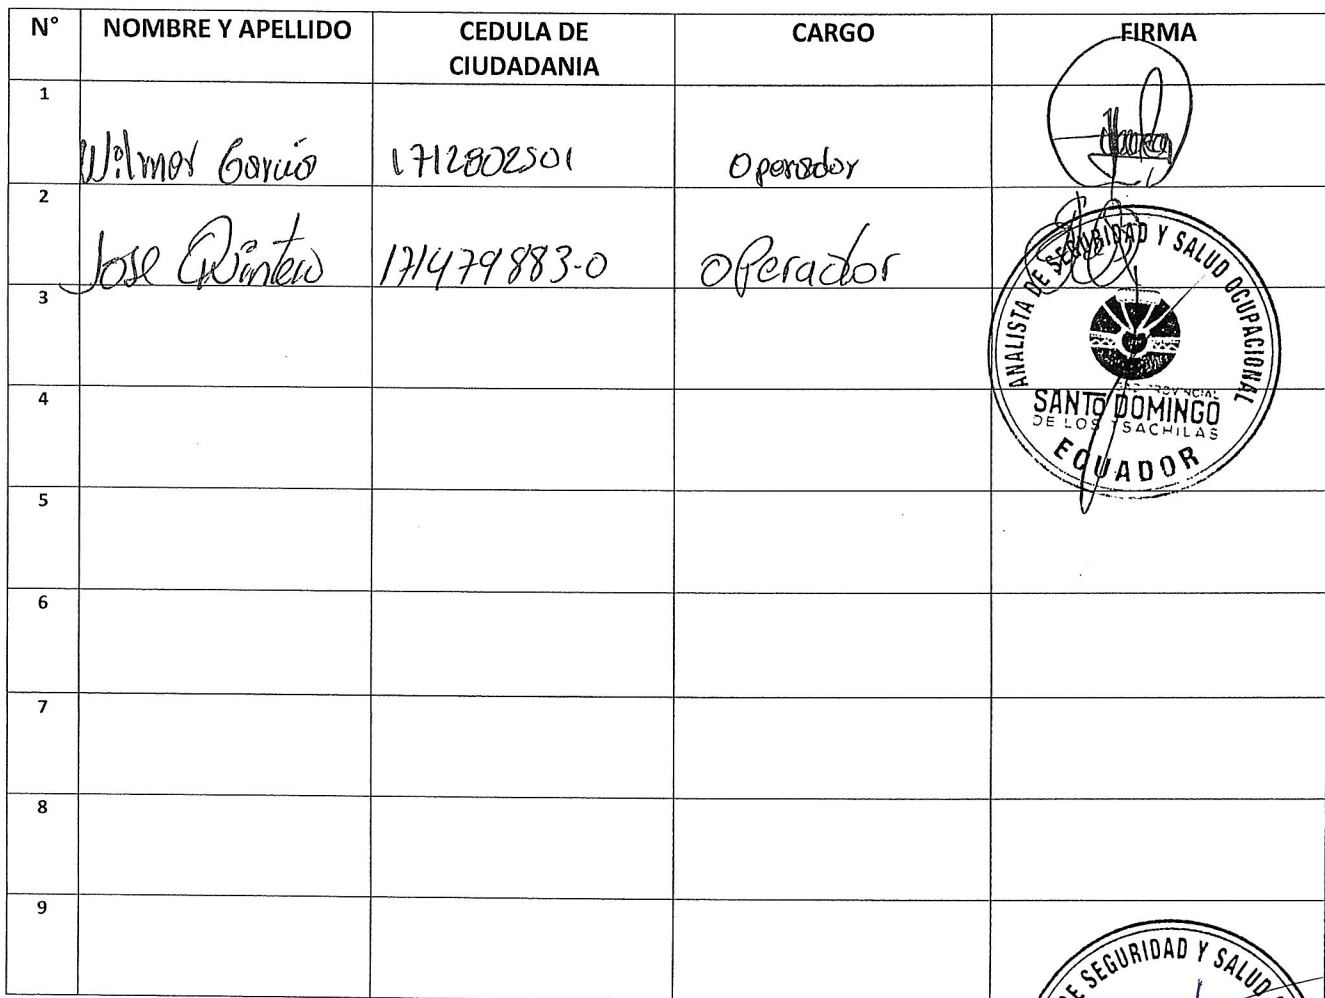 N° NOMBRE Y APELLIDO CEDULA DE CIUDADANIA CARGO FIRMA
1 Wilmer Garcia 1712802501 Operador
2 Jose Quintero 171479883-0 Operador
3
ANALISTA DE SEGURIDAD Y SALUD OCUPACIONAL
GAD PROVINCIAL
SANTO DOMINGO
DE LOS TSACHILAS
ECUADOR
4
5
6
7
8
9
DE SEGURIDAD Y SALUD